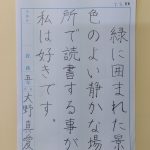 緑に囲まれた景
色のよい静かな場
所で読書する事が
私は好きです。
大野真